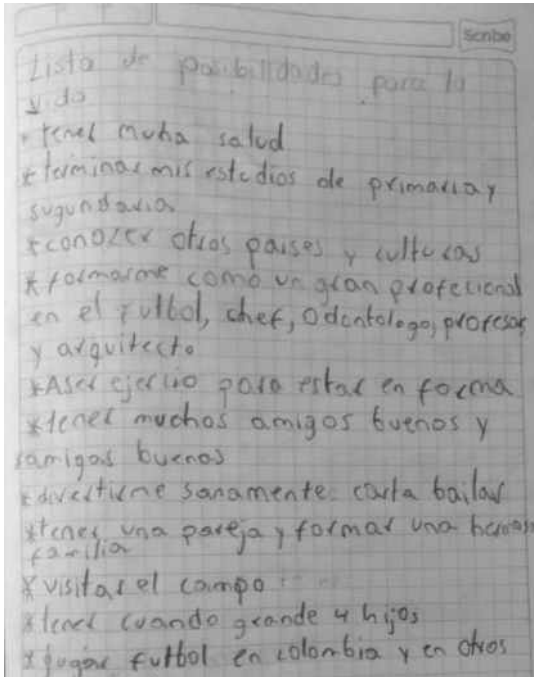 Scribe
Lista de posibilidades para la
vida
* tener muha salud
* terminar mis estudios de primaria y
sugundaria
* conozer otros paises y culturas
* formarme como un gran profecional
en el futbol, chef, Odontologo, profesor
y arquitecto
* Aser ejercio para estar en forma
* tener muchos amigos buenos y
amigas buenas
* divertirme sanamente: carta bailar
* tener una pareja y formar una hermosa
familia
* visitar el campo
* tener cuando grande 4 hijos
* jugar futbol en colombia y en otros